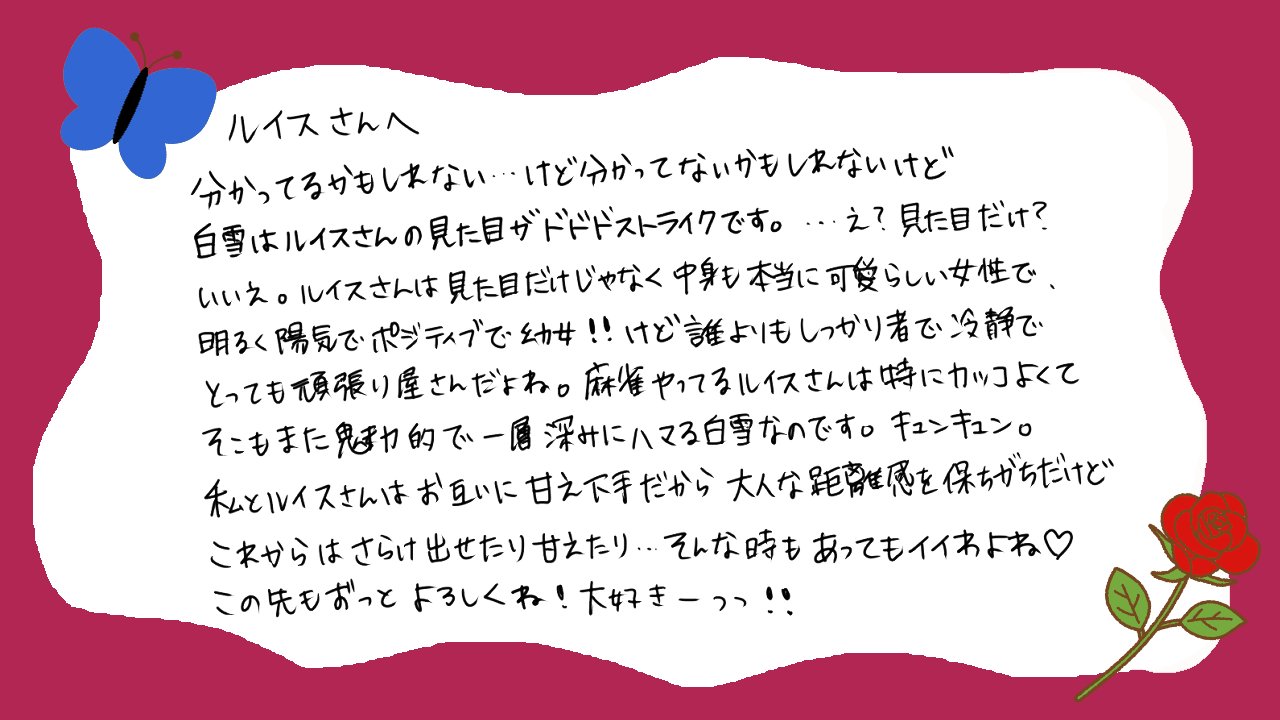 ルイスさんへ
分かってるかもしれない…けど分かってないかもしれないけど
白雪はルイスさんの見た目ザドドドストライクです。…え?見た目だけ?
いいえ。ルイスさんは見た目だけじゃなく中身も本当に可愛らしい女性で、
明るく陽気でポジティブで幼女!!けど誰よりもしっかり者で冷静で
とっても頑張り屋さんだよね。麻雀やってるルイスさんは特にカッコよくて
そこもまた魅力的で一層深みにハマる白雪なのです。キュンキュン。
私とルイスさんはお互いに甘え下手だから大人な距離感を保ちがちだけど
これからはさらけ出せたり甘えたり…そんな時もあってもイイわよね♡
この先もずっとよろしくね!大好きーっっ!!